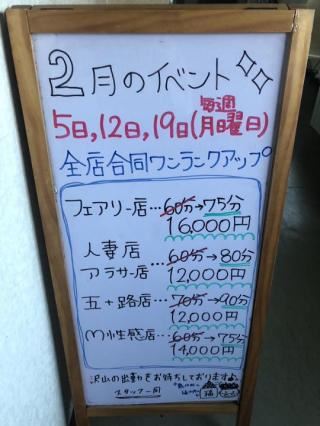 2月のイベント
毎週
5日,12日,19日(月曜日)
全店合同ワンランクアップ
フェアリー店…60分→75分
16,000円
人妻店
アラサー店…60分→80分
12,000円
五十路店…70分→90分
12,000円
M性感店…60分→75分
14,000円
沢山の出勤をお待ちしております♪
スタッフ一同